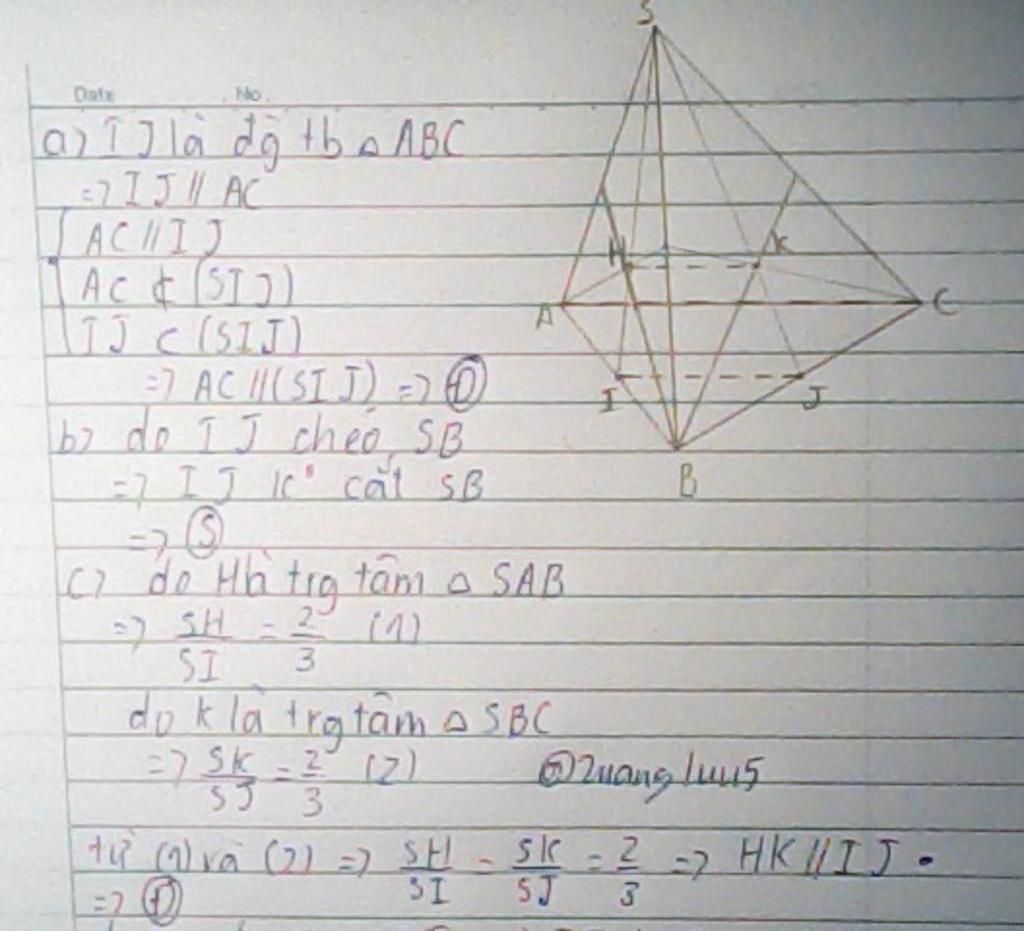 S
Date No.
a) IJ là đg tb △ ABC
=> IJ // AC
AC // IJ
AC ⊄ (SIJ)
IJ ⊂ (SIJ)
=> AC // (SIJ) => Đ
H K
A C
I J
B
b) do IJ chéo SB
=> IJ k° cắt SB
=> S
c) do H là trg tâm △ SAB
=> SH/SI = 2/3 (1)
do K là trg tâm △ SBC
=> SK/SJ = 2/3 (2) @2uangluu5
từ (1) và (2) => SH/SI = SK/SJ = 2/3 => HK // IJ .
=> Đ